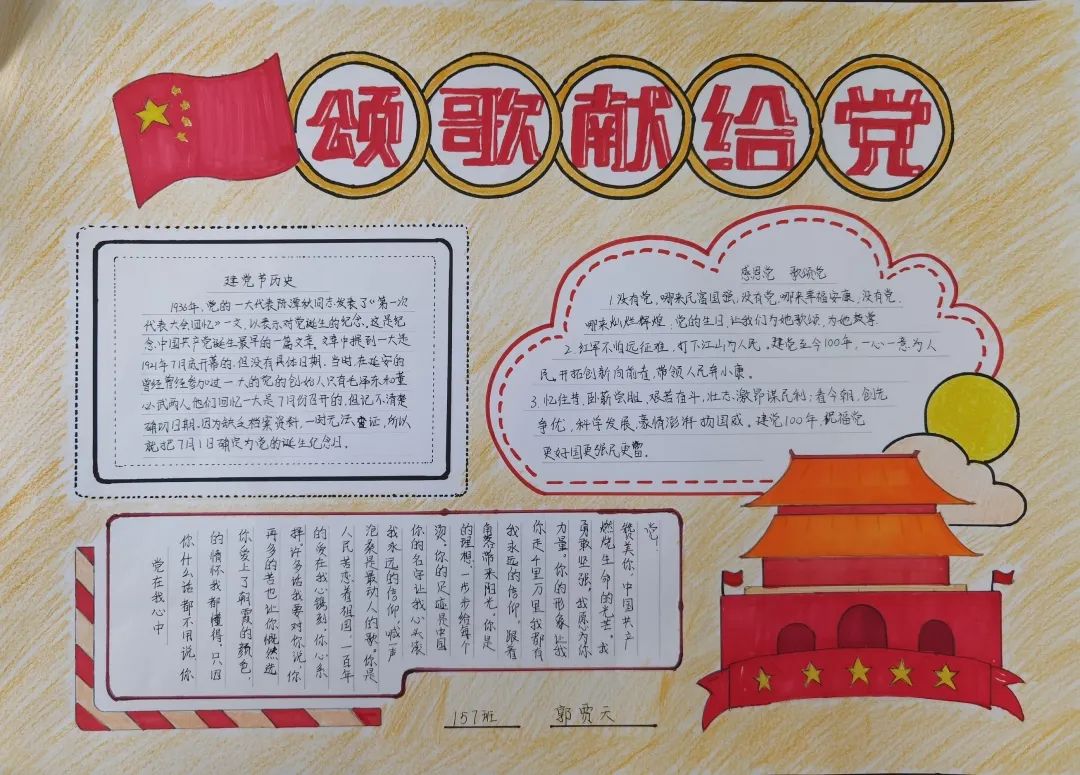 颂歌献给党
建党节历史
1936年，党的一大代表陈潭秋同志发表了《第一次
代表大会回忆》一文，以表示对党诞生的纪念。这是纪
念中国共产党诞生最早的一篇文章。文章中提到一大是
1921年7月底开幕的，但没有具体日期，当时在延安的
曾经曾经参加过一大的党的创始人只有毛泽东和董
必武两人他们回忆一大是7月份召开的，但记不清楚
确切日期。因为缺乏档案资料，一时无法查证，所以
就把7月1日确定为党的诞生纪念日。
感恩党 歌颂党
1.没有党，哪来民富国强，没有党，哪来幸福安康，没有党，
哪来灿烂辉煌，党的生日，让我们为她歌颂，为她鼓掌.
2.红军不怕远征难，打下江山为人民。建党至今100年，一心一意为人
民，开拓创新向前走，带领人民奔小康。
3.忆往昔，卧薪尝胆，艰苦奋斗，壮志激昂谋民利；看今朝，创先
争优，科学发展，豪情澎湃扬国威。建党100年，祝福党
更好国更强民更富。
党在我心中
你什么话都不用说，你
的情怀我都懂得，只因
你爱上了朝霞的颜色，
再多的苦也让你慨然选
择，许多话我要对你说，你
的爱在我心镌刻，你心系
人民苦恋着祖国，一百年
沧桑是最动人的歌。你是
我永远的信仰，喊一声
你的名字让我心头滚
烫，你的足迹是中国
的理想，一步步给每个
角落带来阳光。你是
我永远的信仰，跟着
你走千里万里我都有
力量。你的形象让我
勇敢坚强，我愿为你
燃烧生命的光芒。我
赞美你，中国共产
党！
157班 郭贾天